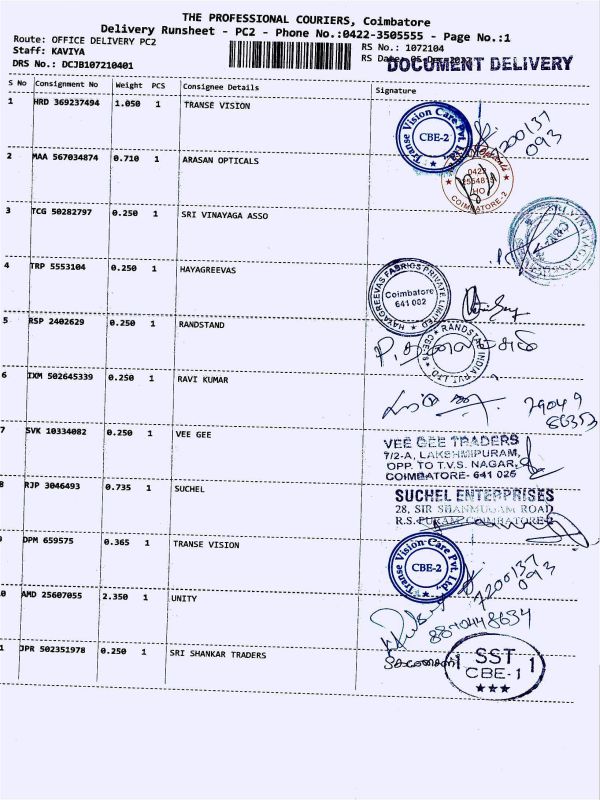 THE PROFESSIONAL COURIERS, Coimbatore
Delivery Runsheet - PC2 - Phone No.:0422-3505555 - Page No.:1
Route: OFFICE DELIVERY PC2
RS No.: 1072104
Staff: KAVIYA
RS Date:
DOCUMENT DELIVERY
DRS No.: DCJB107210401
S No Consignment No Weight PCS Consignee Details Signature
1 HRD 369237494 1.050 1 TRANSE VISION
Transe Vision Care Pvt. Ltd. CBE-2
7200137
093
2 MAA 567034874 0.710 1 ARASAN OPTICALS
0422
HO
COIMBATORE-2
3 TCG 50282797 0.250 1 SRI VINAYAGA ASSO
4 TRP 5553104 0.250 1 HAYAGREEVAS
HAYAGREEVAS FABRICS PRIVATE LIMITED
Coimbatore
641 002
5 RSP 2402629 0.250 1 RANDSTAND
RANDSTAD INDIA PVT. LTD
6 IXM 502645339 0.250 1 RAVI KUMAR
79049
86353
7 SVK 10334082 0.250 1 VEE GEE
VEE GEE TRADERS
7/2-A, LAKSHMIPURAM,
OPP. TO T.V.S. NAGAR,
COIMBATORE- 641 025
8 RJP 3046493 0.735 1 SUCHEL
SUCHEL ENTERPRISES
28, SIR SHANMUGAM ROAD
R.S. PURAM COIMBATORE-2
9 DPM 659575 0.365 1 TRANSE VISION
Transe Vision Care Pvt. Ltd., CBE-2
7200137
093
10 AMD 25607055 2.350 1 UNITY
8890448634
11 JPR 502351978 0.250 1 SRI SHANKAR TRADERS
1 SST 1
CBE-1
★★★